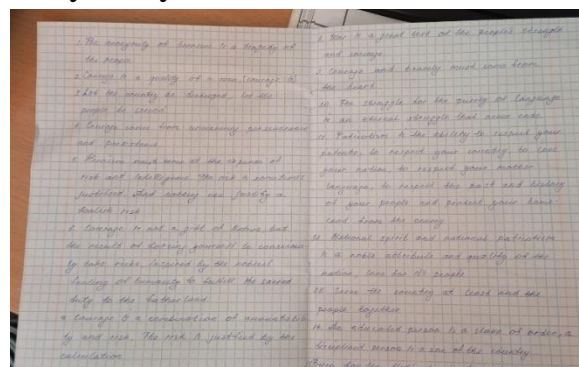 1. The anonymity of heroism is a tragedy of
the people.
2. Courage is a quality of a man. Courage is
3. Let the country be damaged, let the
people be saved
4. Courage comes from uncanny perseverance
and
5. Heroism must come at the expense of
risk and intelligence. The risk is sometimes
justified. And nothing can justify a
foolish risk
6. Courage is not a gift of nature but
the result of forcing yourself to conscious-
ly take risks, inspired by the noblest
feeling of humanity to fulfill the sacred
duty to the fatherland.
7. Courage is a combination of
ty and risk. The risk is justified by the
calculation
8. War is a great test of the people's strength
and courage
9. Courage and bravery must come from
the heart.
10. The struggle for the purity of language
is an eternal struggle that never ends.
11. Patriotism is the ability to respect your
parents, to respect your country, to love
your nation, to respect your mother
language, to respect the past and history
of your people and protect your home-
land from the enemy
12. National spirit and national patriotism
is a noble attribute and quality of the
nation,
13. Serve the country at least and the
people together
14. An educated person is a slave of order, a
disciplined person is a son of the country.